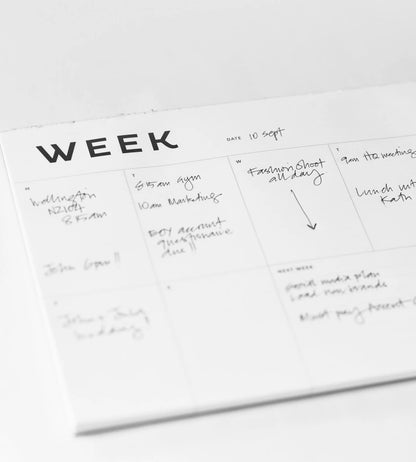 WEEK
DATE 10 sept
M
Wellington
8:15am
T
8:15am Gym
10am Marketing
BOX account
questionaire
due!!
W
Fashion Shoot
all day
T
9am HQ meeting
Lunch wit
Kath
F
John & July
wedding
S
NEXT WEEK
Social media plan
Load new brands
Must pay Accent